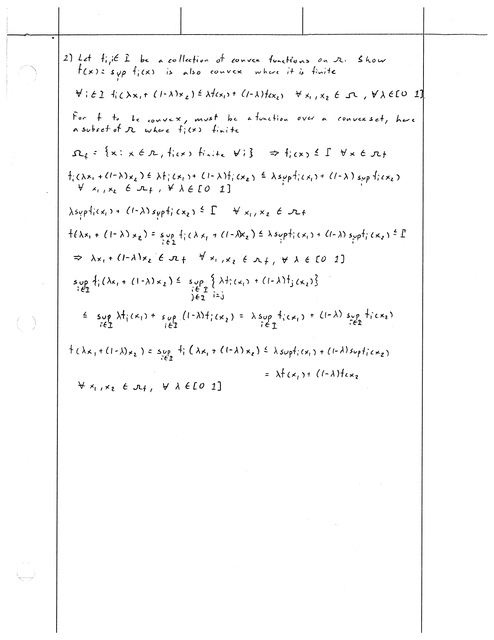 2) Let fi, i∈ I be a collection of convex functions on Ω. Show
f(x) = sup fi(x) is also convex where it is finite
∀ i ∈ I fi(λx₁ + (1-λ)x₂) ≤ λf(x₁) + (1-λ)f(x₂) ∀ x₁, x₂ ∈ Ω, ∀ λ∈[0 1]
For f to be convex, must be a function over a convex set, here
a subset of Ω where fi(x) finite
Ωf = {x : x ∈ Ω, fi(x) finite ∀ i} ⇒ fi(x) ≤ Γ ∀ x ∈ Ωf
fi(λx₁ + (1-λ)x₂) ≤ λfi(x₁) + (1-λ)fi(x₂) ≤ λ sup fi(x₁) + (1-λ) sup fi(x₂)
∀ x₁, x₂ ∈ Ωf, ∀ λ ∈ [0 1]
λ sup fi(x₁) + (1-λ) sup fi(x₂) ≤ Γ ∀ x₁, x₂ ∈ Ωf
f(λx₁ + (1-λ)x₂) = sup i∈I fi(λx₁ + (1-λ)x₂) ≤ λ sup fi(x₁) + (1-λ) sup fi(x₂) ≤ Γ
⇒ λx₁ + (1-λ)x₂ ∈ Ωf ∀ x₁, x₂ ∈ Ωf, ∀ λ ∈ [0 1]
sup i∈I fi(λx₁ + (1-λ)x₂) ≤ sup i∈I j∈I i=j {λfi(x₁) + (1-λ)fj(x₂)}
≤ sup i∈I λfi(x₁) + sup i∈I (1-λ)fi(x₂) = λ sup i∈I fi(x₁) + (1-λ) sup i∈I fi(x₂)
f(λx₁ + (1-λ)x₂) = sup i∈I fi(λx₁ + (1-λ)x₂) ≤ λ sup fi(x₁) + (1-λ) sup fi(x₂)
= λf(x₁) + (1-λ)f(x₂
∀ x₁, x₂ ∈ Ωf, ∀ λ ∈ [0 1]